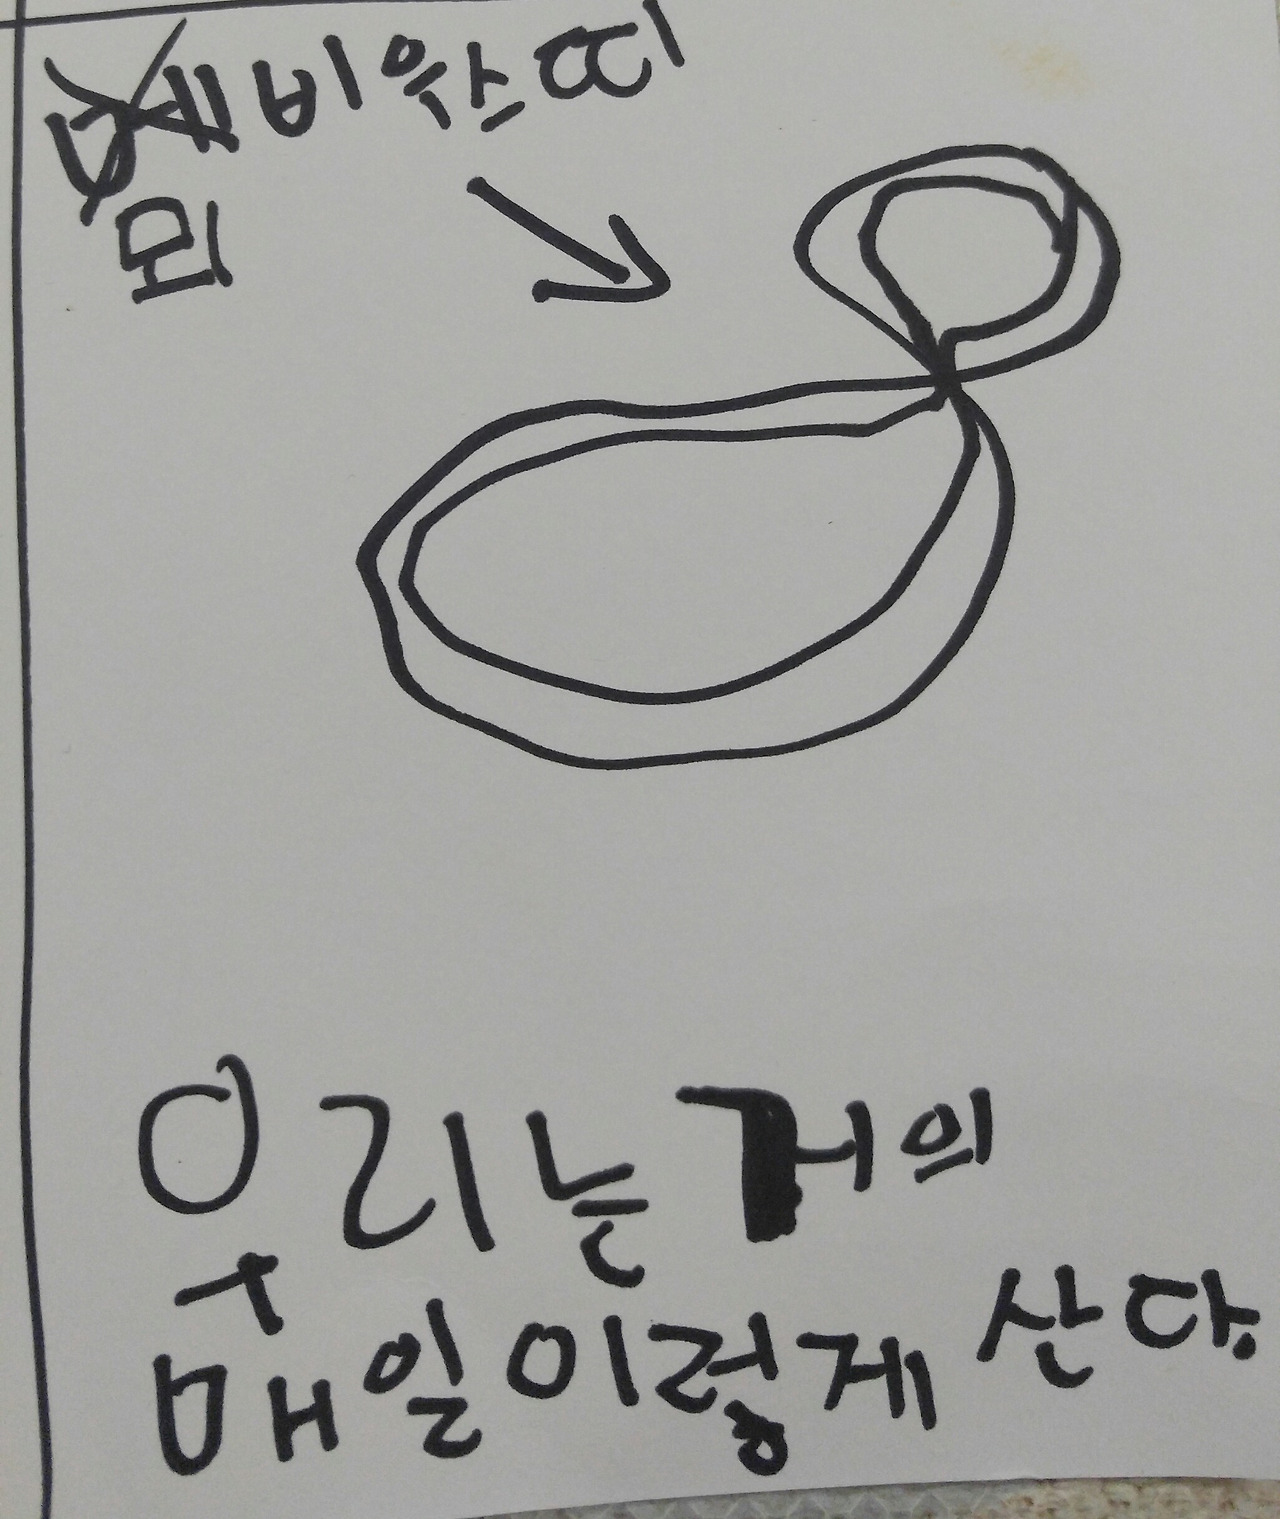 비우스띠
뫼
우리는 거의
매일 이렇게 산다.